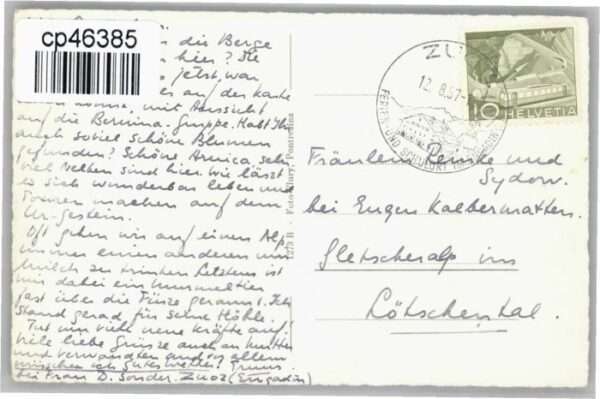 cp46385
die Berge
hier? Die
jetzt, war
es auf der Karte
mit Aussicht
auf die Bernina-Gruppe. Habt Ihr
auch soviel schöne Blumen
gefunden? Schöne Arnica, sehr
viel Nelken sind hier. Wie lässt
es sich wunderbar leben und
Touren machen auf dem
Ur-Gestein.
Oft gehen wir auf einen Alp,
immer einen anderen um
Milch zu trinken. Letztens ist
mir dabei ein Murmeltier
fast über die Füsse gerannt. Ich
stand gerad für seine Höhle.
Tut nun viele neue Kräfte auf!
Viele liebe Grüsse auch an Mutter
und Verwandten und vor allem
wünschen ich gutes Wetter!
bei Frau D. Sonder. Zuoz (Engadin)
1273 B - Foto
ZUOZ
12.8.57
FERIEN- UND SCHULORT
10
HELVETIA
Fräulein Renke und
Sydow.
bei Eugen Kalbermatten.
Gletscheralp im
Lötschental.